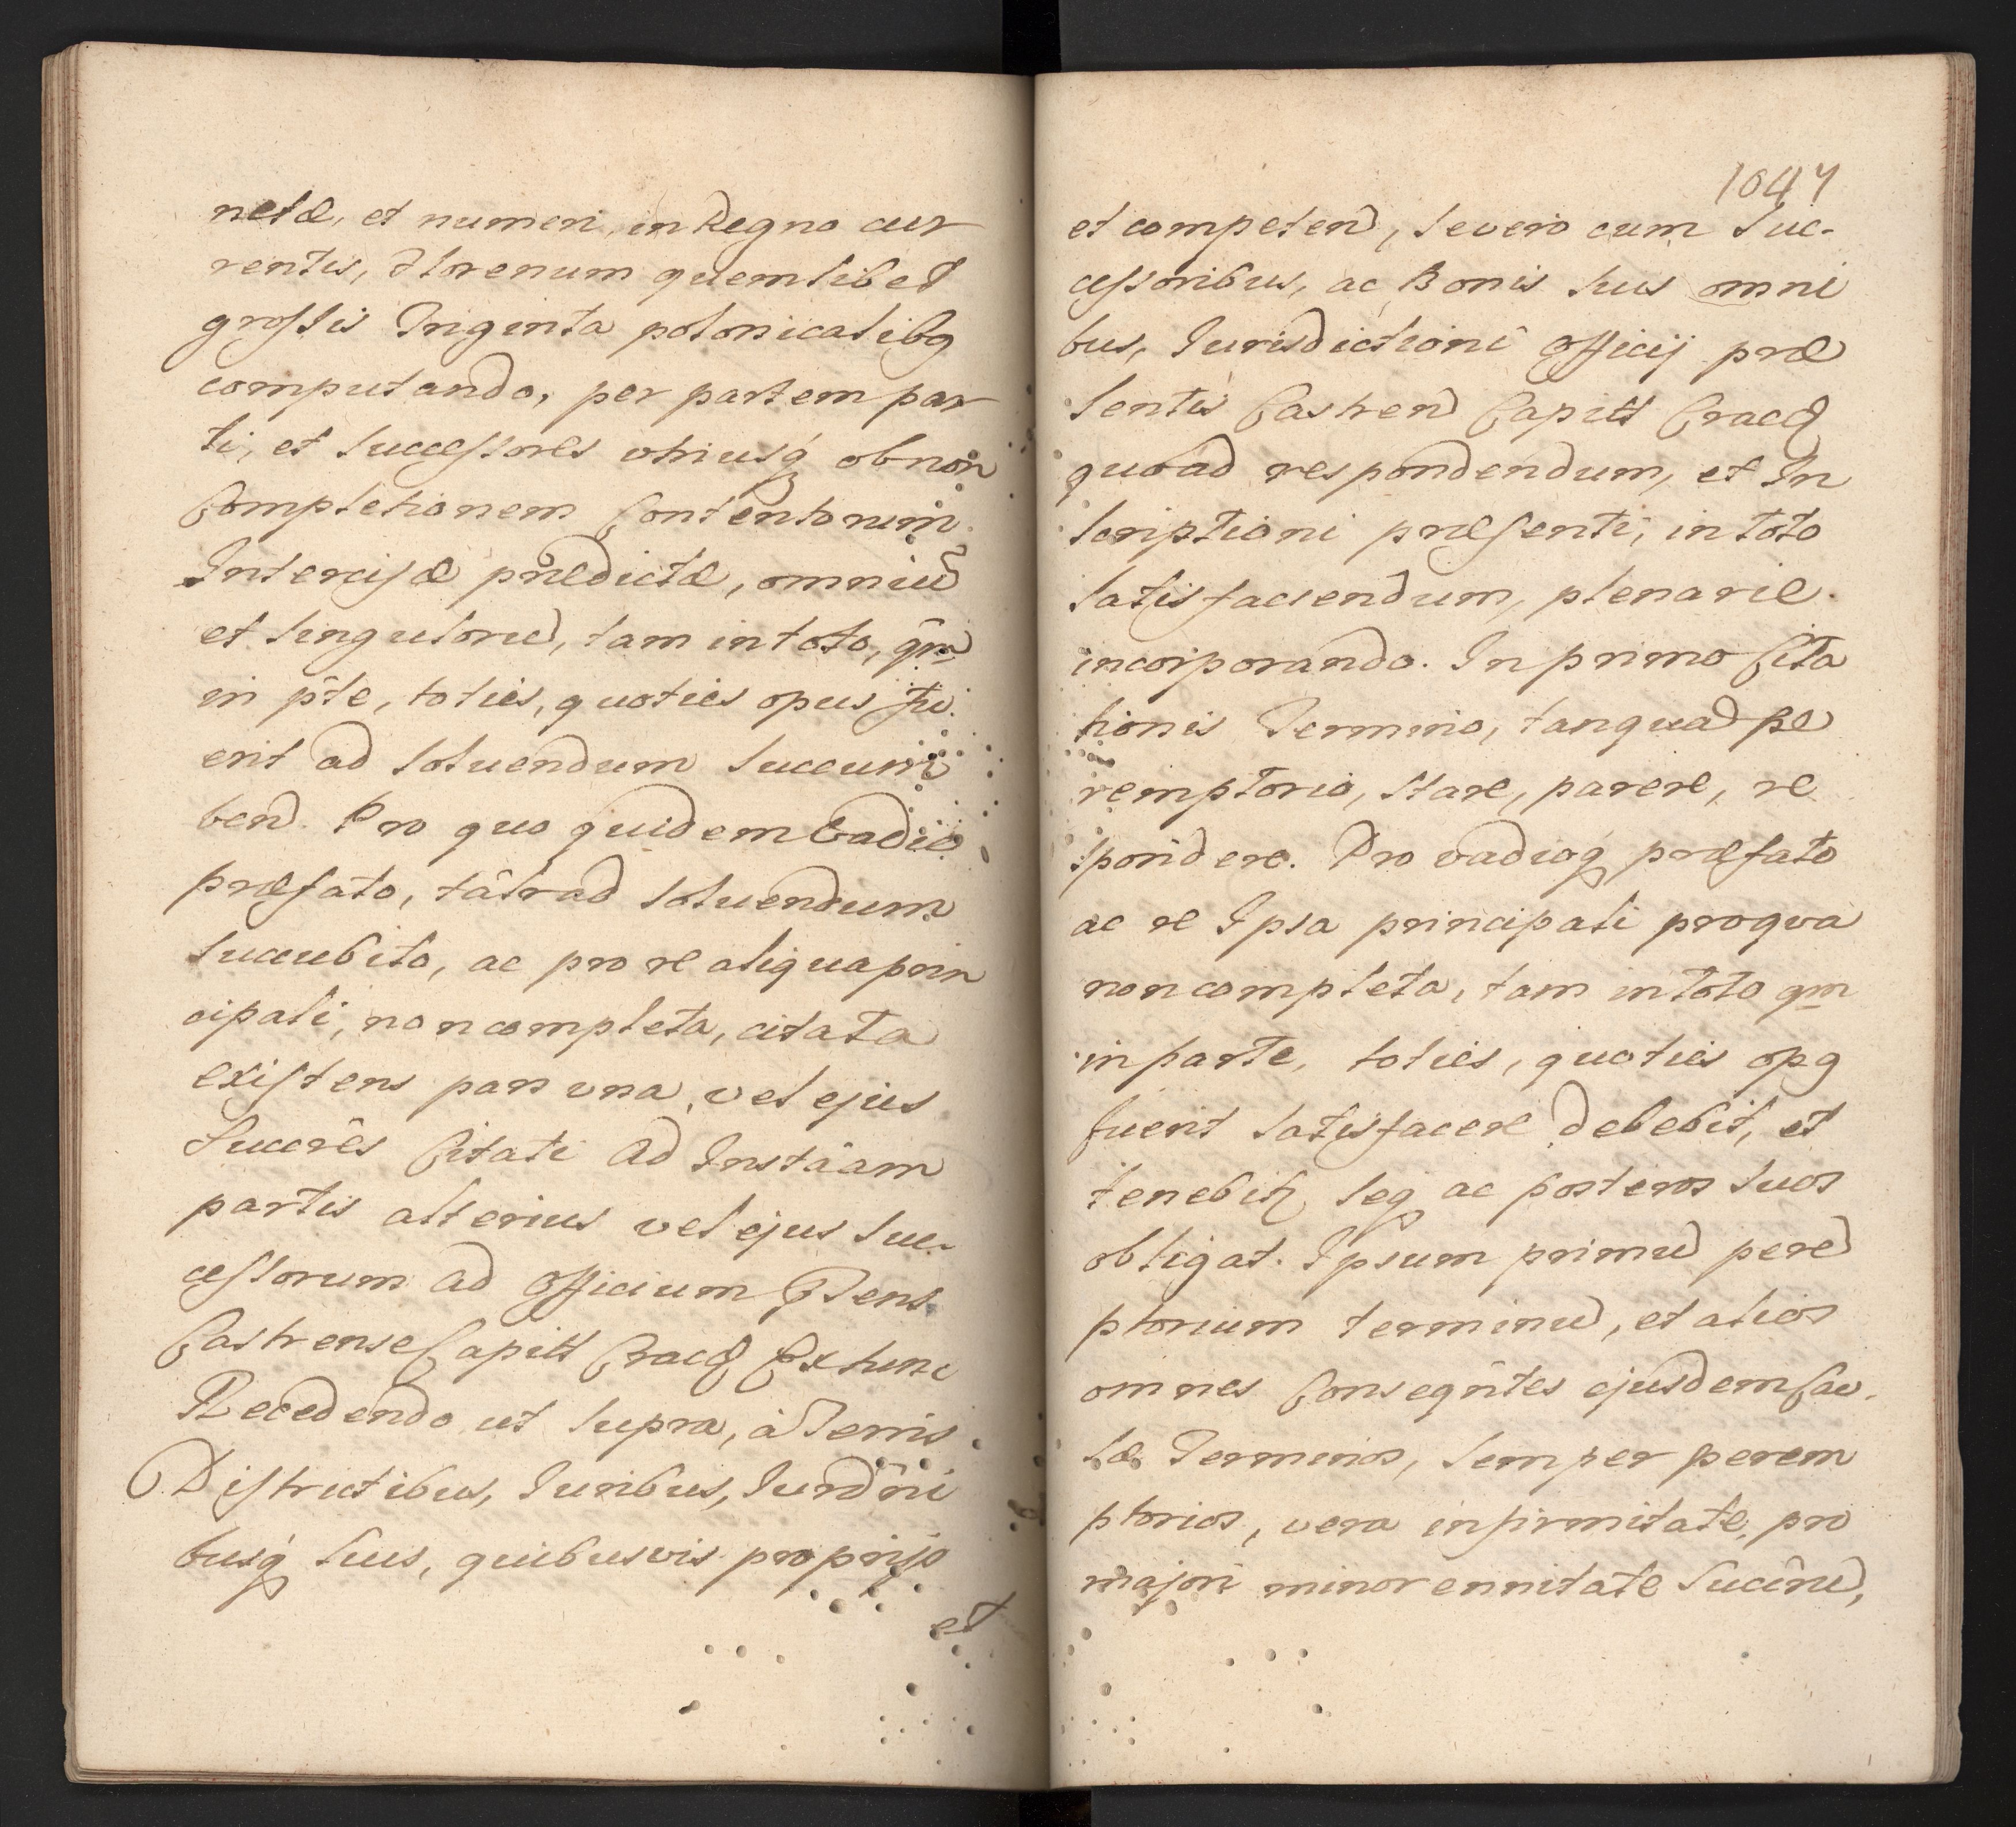 netæ, et numeri, in Regno cur
rentis, Florenum quemlibet
grossis Triginta polonicalibq
computando, per partem par
ti, et Successores utriusq́ ob non
Completionem Contentorum
Intercisæ prædictæ, omniũ
et singulorũ, tam in toto, qm̃
in pt̃e, toties, quoties opus fu
erit ad solvendum succum
bend. Pro quo quidem Vadio
præfato, talr̃ ad solvendum
succubito, ac pro re aliqua prin
cipali, non completa, citata
existens pars una, vel ejus
Succrẽs Citati ad Instãam
partis alterius vel ejus Suc-
cessorum ad Officium Psens
Castrense Capitt Cracq Ex tunc
Recedendo ut supra, à Terris
Districtibus, Juribus, Jurdñi
busq́ suis, quibusvis proprijs
et
1047
et competend, se vero cum Suc-
cessoribus, ac Bonis suis omni
bus, Jurisdictioni Officij præ
sentis Castrend Capitt Cracq
quoad respondendum, et In
scriptioni præsenti, in toto
satisfaciendum, plenarie
incorporando. In primo Cita
tionis Termino, tanquã pe
remptorio, stare, parere, re
spondere. Pro vadioq́ præfato
ac re Ipsa principali pro qva
non completa, tam in toto qm
in parte, toties, quoties opq
fuerit satisfacere debebit, et
tenebitr seq ac posteros suos
obligat. Ipsum primũ perẽ
ptorium terminũ, et alios
omnes Conseqñtes ejusdem Cau
sæ Terminos, semper perem
ptorios, vera infirmitate, pro
majori minorennitate Succrũ,